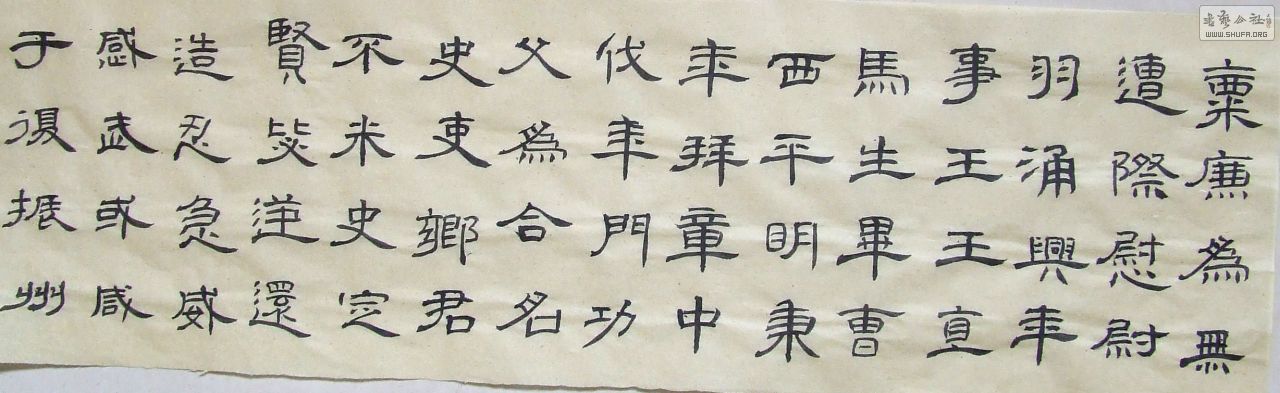 廉爲無
遭際慰尉
羽涌興年
事王王直
馬生畢曹
西平明秉
年拜章中
伐年門功
父爲合名
史吏鄉君
不米史定
賢逆還
造忍急威
感武或咸
于復振州
書藝公社
WWW.SHUFA.ORG